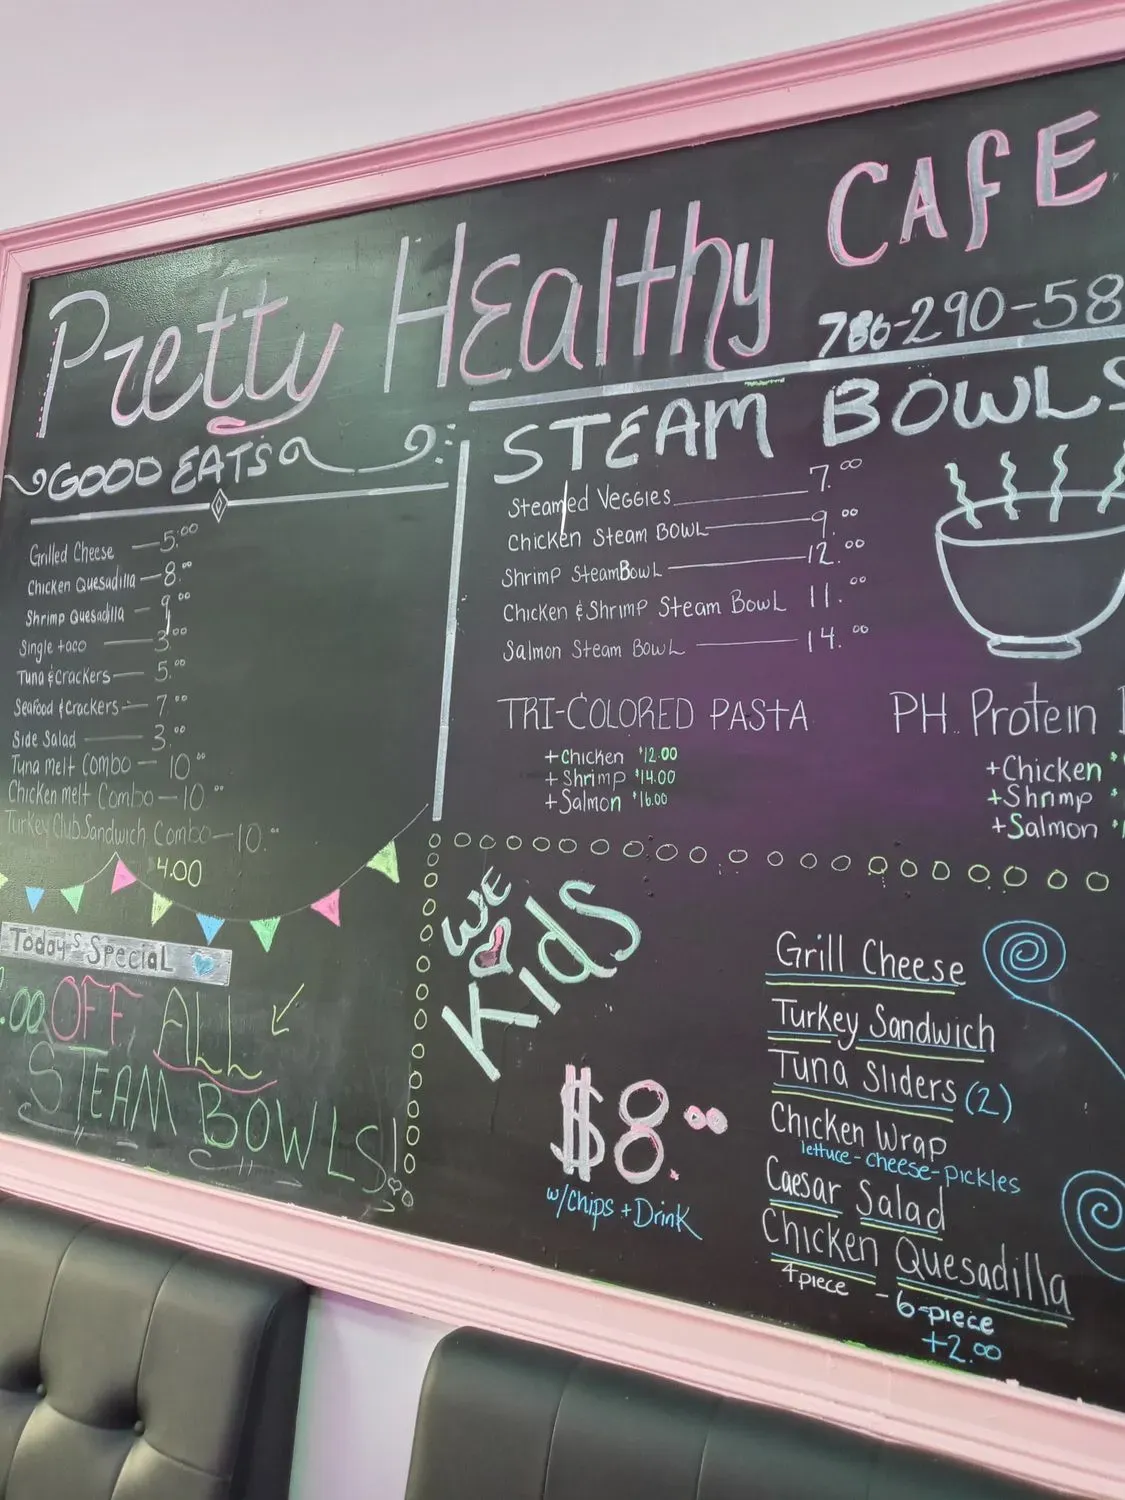 Pretty Healthy CAFE
786-290-58
GOOD EATS
Grilled Cheese 5.00
Chicken Quesadilla 8.00
Shrimp Quesadilla 9.00
Single taco 3.00
Tuna & Crackers 5.00
Seafood & Crackers 7.00
Side Salad 3.00
Tuna melt Combo 10.00
Chicken melt Combo 10.00
Turkey Club Sandwich Combo 10.00
4.00
Today's Special
.00 OFF ALL
STEAM BOWLS!
STEAM BOWLS
Steamed Veggies 7.00
Chicken Steam BOWL 9.00
Shrimp SteamBowl 12.00
Chicken & Shrimp Steam Bowl 11.00
Salmon Steam Bowl 14.00
TRI-COLORED PASTA
+Chicken $12.00
+Shrimp $14.00
+Salmon $16.00
PH. Protein
+Chicken $
+Shrimp $
+Salmon $
WE
Kids
$8.00
w/Chips + Drink
Grill Cheese
Turkey Sandwich
Tuna Sliders (2)
Chicken Wrap
lettuce-cheese-pickles
Caesar Salad
Chicken Quesadilla
4 piece - 6-piece
+2.00